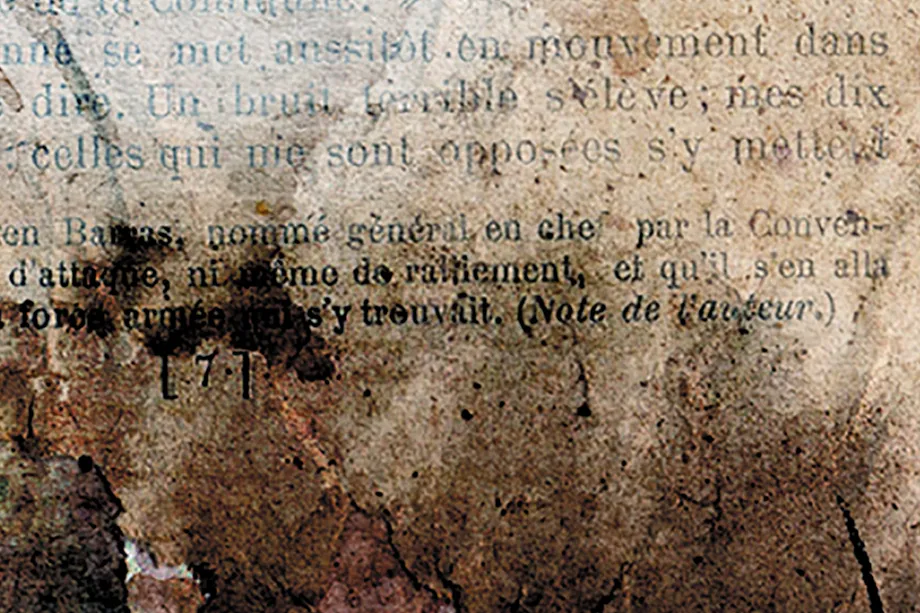 de la
se met aussitôt en mouvement dans
dire. Un bruit terrible s'élève; mes dix
celles qui me sont opposées s'y mettent
Barras, nommé général en chef par la Conven-
d'attaque, ni même de ralliement, et qu'il s'en alla
force armée qui s'y trouvait. (Note de l'auteur.)
[7.]